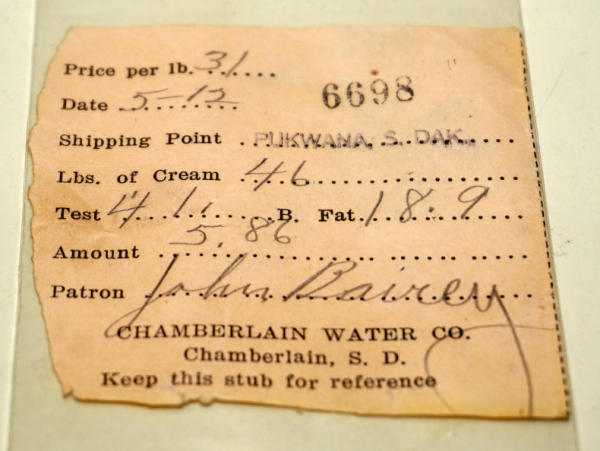 Price per lb. 31
6698
Date 5-12
Shipping Point PUKWANA, S. DAK.
Lbs. of Cream 46
Test 41 B. Fat 18.9
Amount 5.86
Patron John Bairey
CHAMBERLAIN WATER CO.
Chamberlain, S. D.
Keep this stub for reference